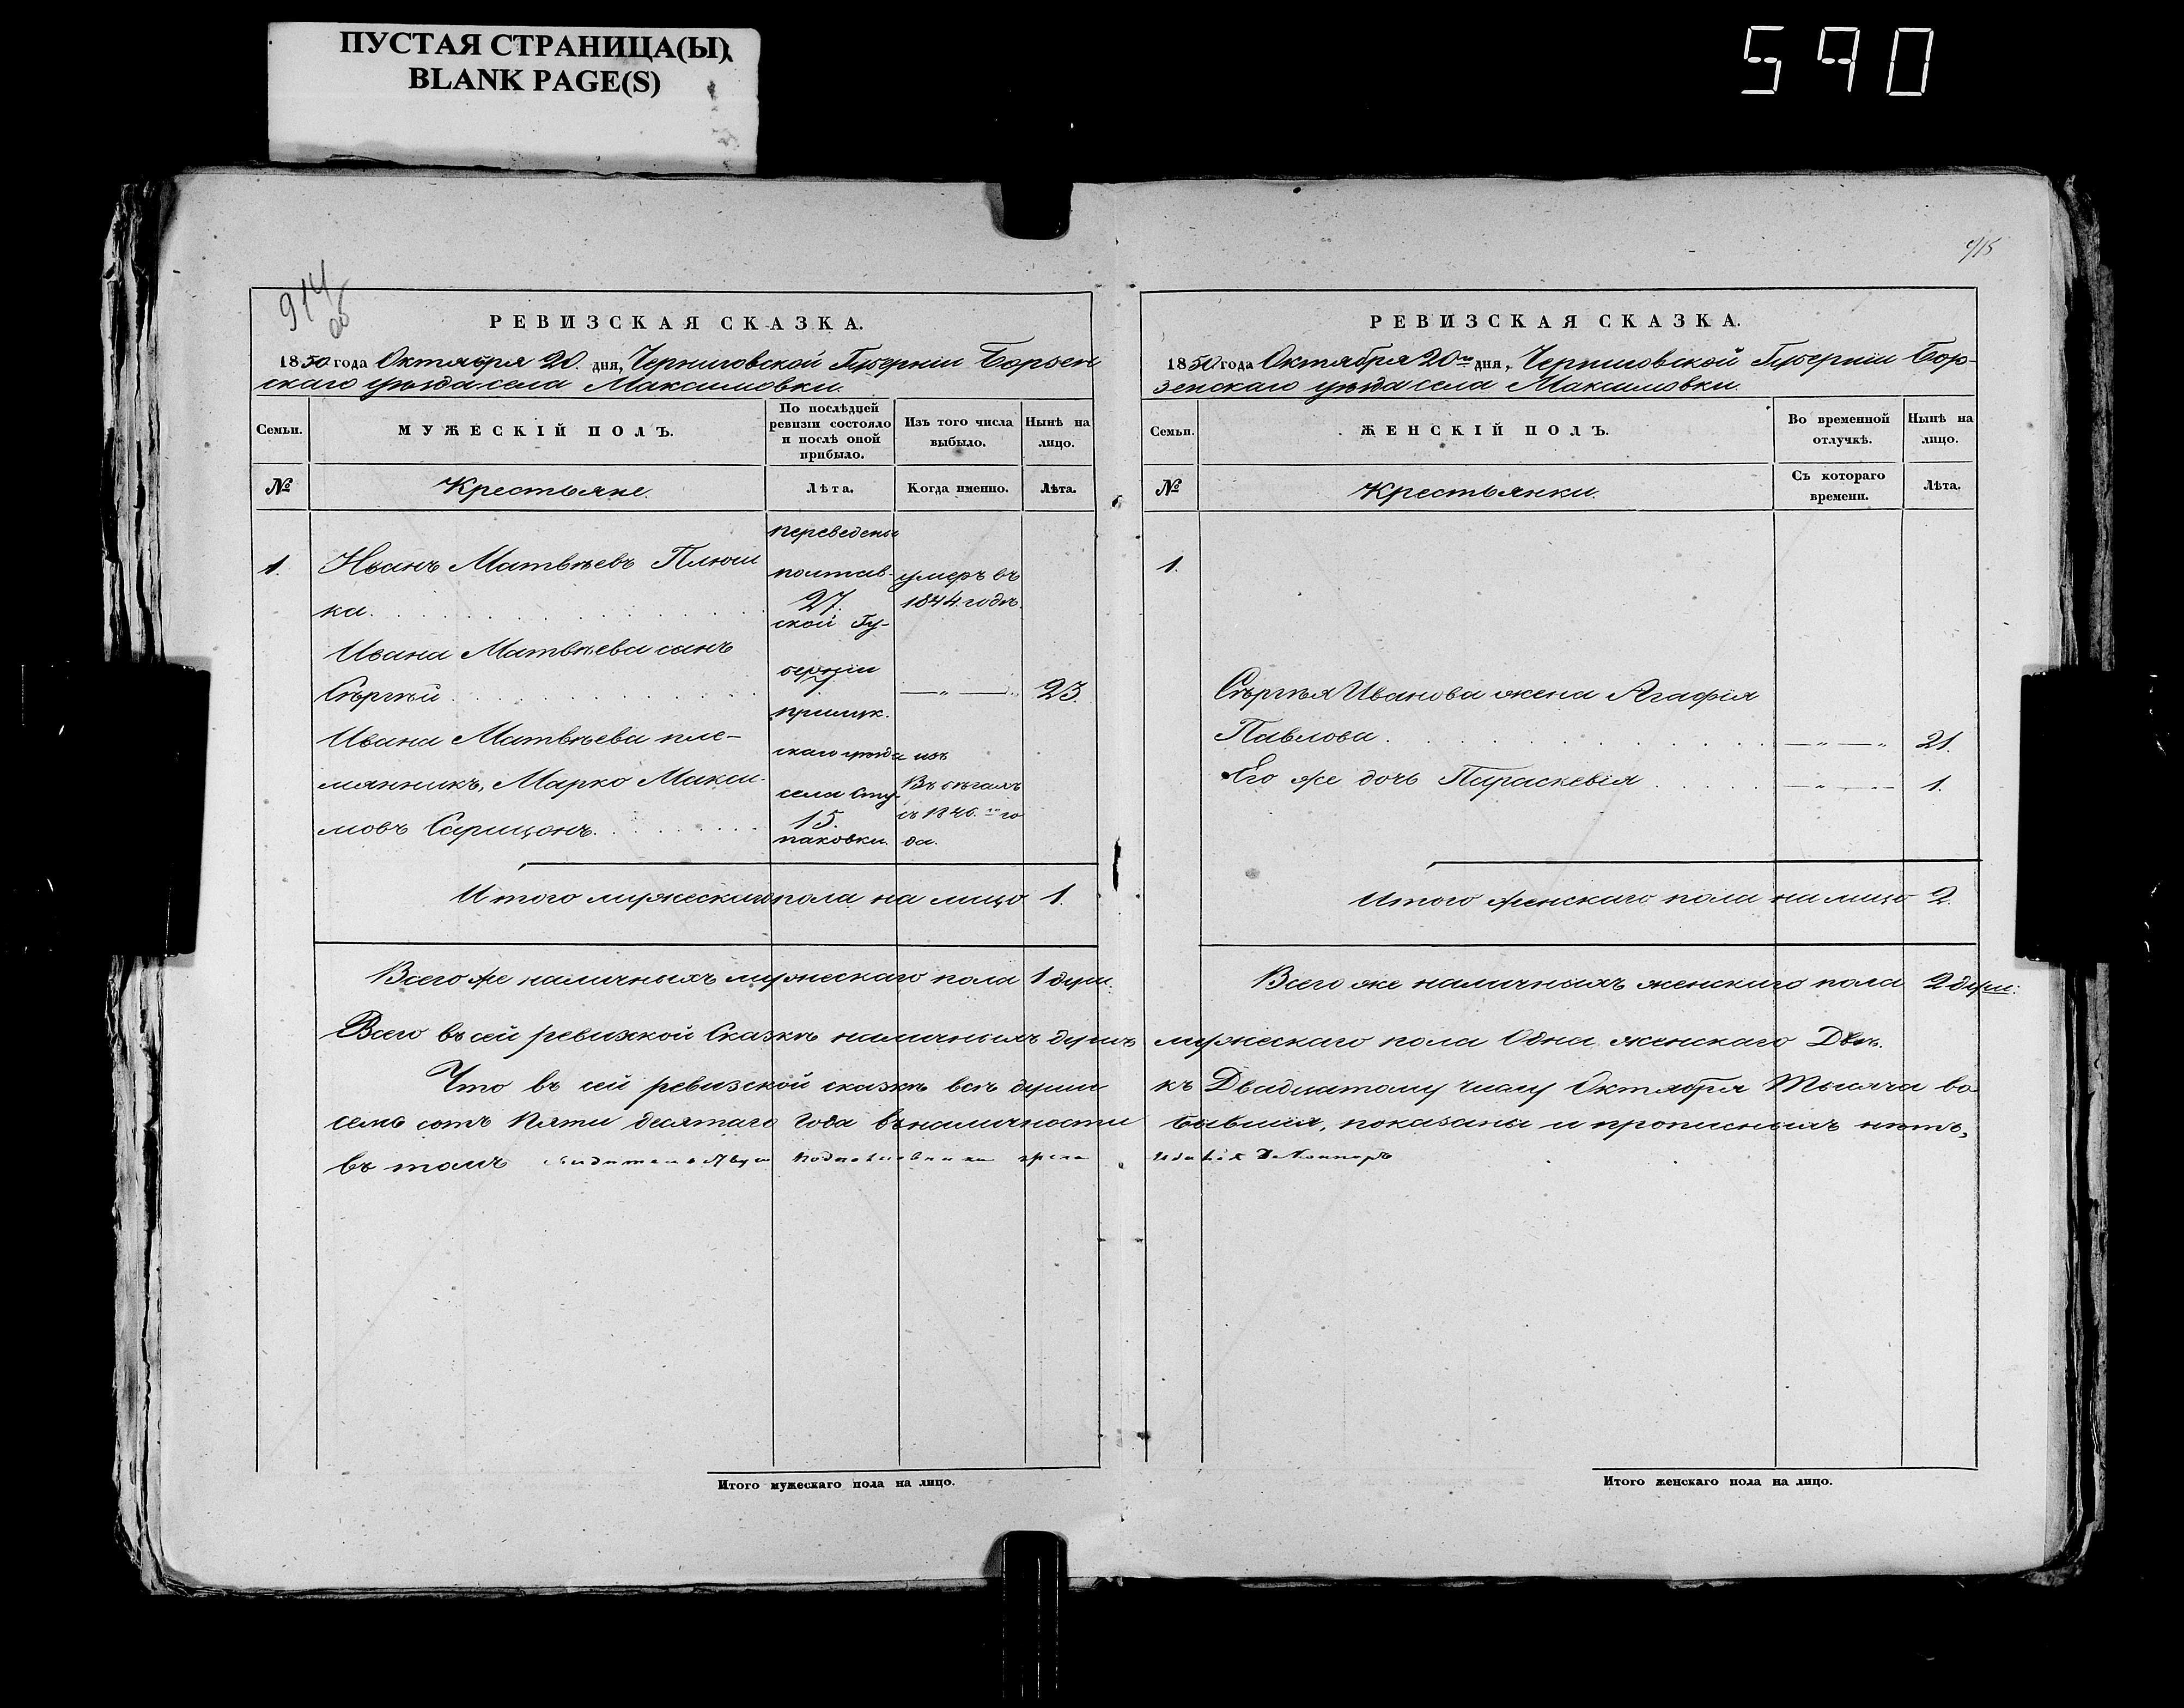 ПУСТАЯ СТРАНИЦА(Ы)
BLANK PAGE(S)
590
914
об
РЕВИЗСКАЯ СКАЗКА.
1850 года Октября 20. дня, Черниговской Губерніи Борзен
скаго уѣзда села Максимовки.
Семьи.
МУЖЕСКІЙ ПОЛЪ.
По послѣдней ревизіи состояло и послѣ оной прибыло.
Изъ того числа выбыло.
Нынѣ на лицо.
№
Крестьяне.
Лѣта.
Когда именно.
Лѣта.
переведены
1. Иванъ Матвѣевъ Плюш полтав- умеръ въ
ка. 27. 1844 годѣ.
ской Гу-
Ивана Матвѣева сынъ
берніи
Сѣргѣй —„— 23.
прилук.
Ивана Матвѣева пле-
скаго уѣзда изъ
мянникъ, Марко Макси- села Сту- Въ бѣгахъ
мовъ 15. съ 1846. го
паковки. да.
Итого мужескаго пола на лицо 1.
Всего же наличныхъ мужескаго пола 1 душ.
Всего въ сей ревизской Сказкѣ наличныхъ душъ
Что въ сей ревизской сказкѣ всѣ души
семь сотъ Пяти десятаго Года въ наличности
въ томъ
Итого мужескаго пола на лицо.
915
РЕВИЗСКАЯ СКАЗКА.
1850 года Октября 20го дня, Черниговской Губерніи Бор-
зенскаго уѣзда села Максимовки.
Семьи.
ЖЕНСКІЙ ПОЛЪ.
Во временной отлучкѣ.
Нынѣ на лицо.
№
Крестьянки.
Съ котораго времени.
Лѣта.
1.
Сѣргѣя Иванова жена Агафія
Павлова. —„—„ 21.
Его же дочь Параскевія 1.
Итого женскаго пола на лицо 2.
Всего же наличныхъ женскаго пола 2 душ:
мужескаго пола Одна женскаго Двѣ.
къ Двадцатому числу Октября Тысяча во
бывшія, показаны и прописныхъ нѣтъ,
Итого женскаго пола на лицо.